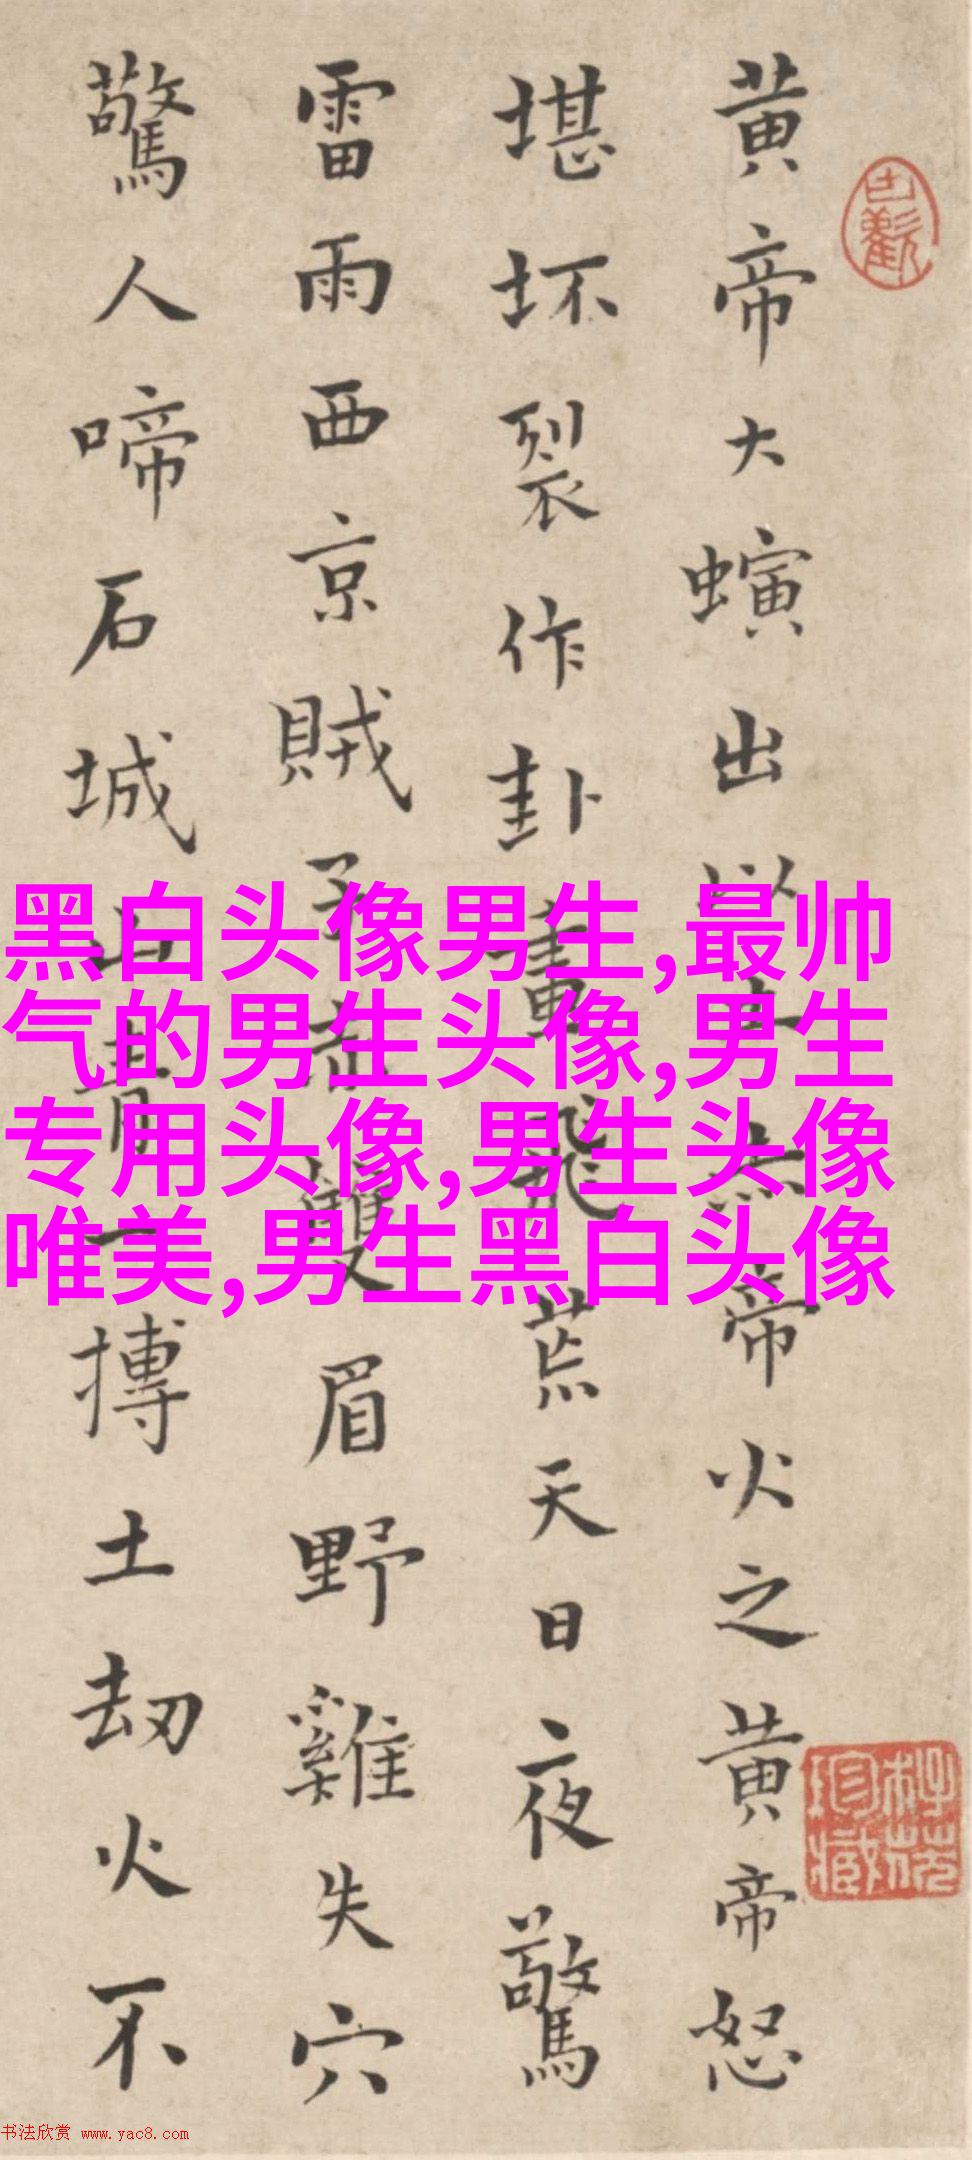 黄帝大螾出以土黑帝火之黄帝怒
堪坏裂作卦畫飛荒天日夜驚
雷雨西京賊子赤雙眉野雞失穴
驚人啼石城山青一摶土劫火不
黑白头像男生,最帅
气的男生头像,男生
专用头像,男生头像
唯美,男生黑白头像
书法欣赏 www.yac8.com